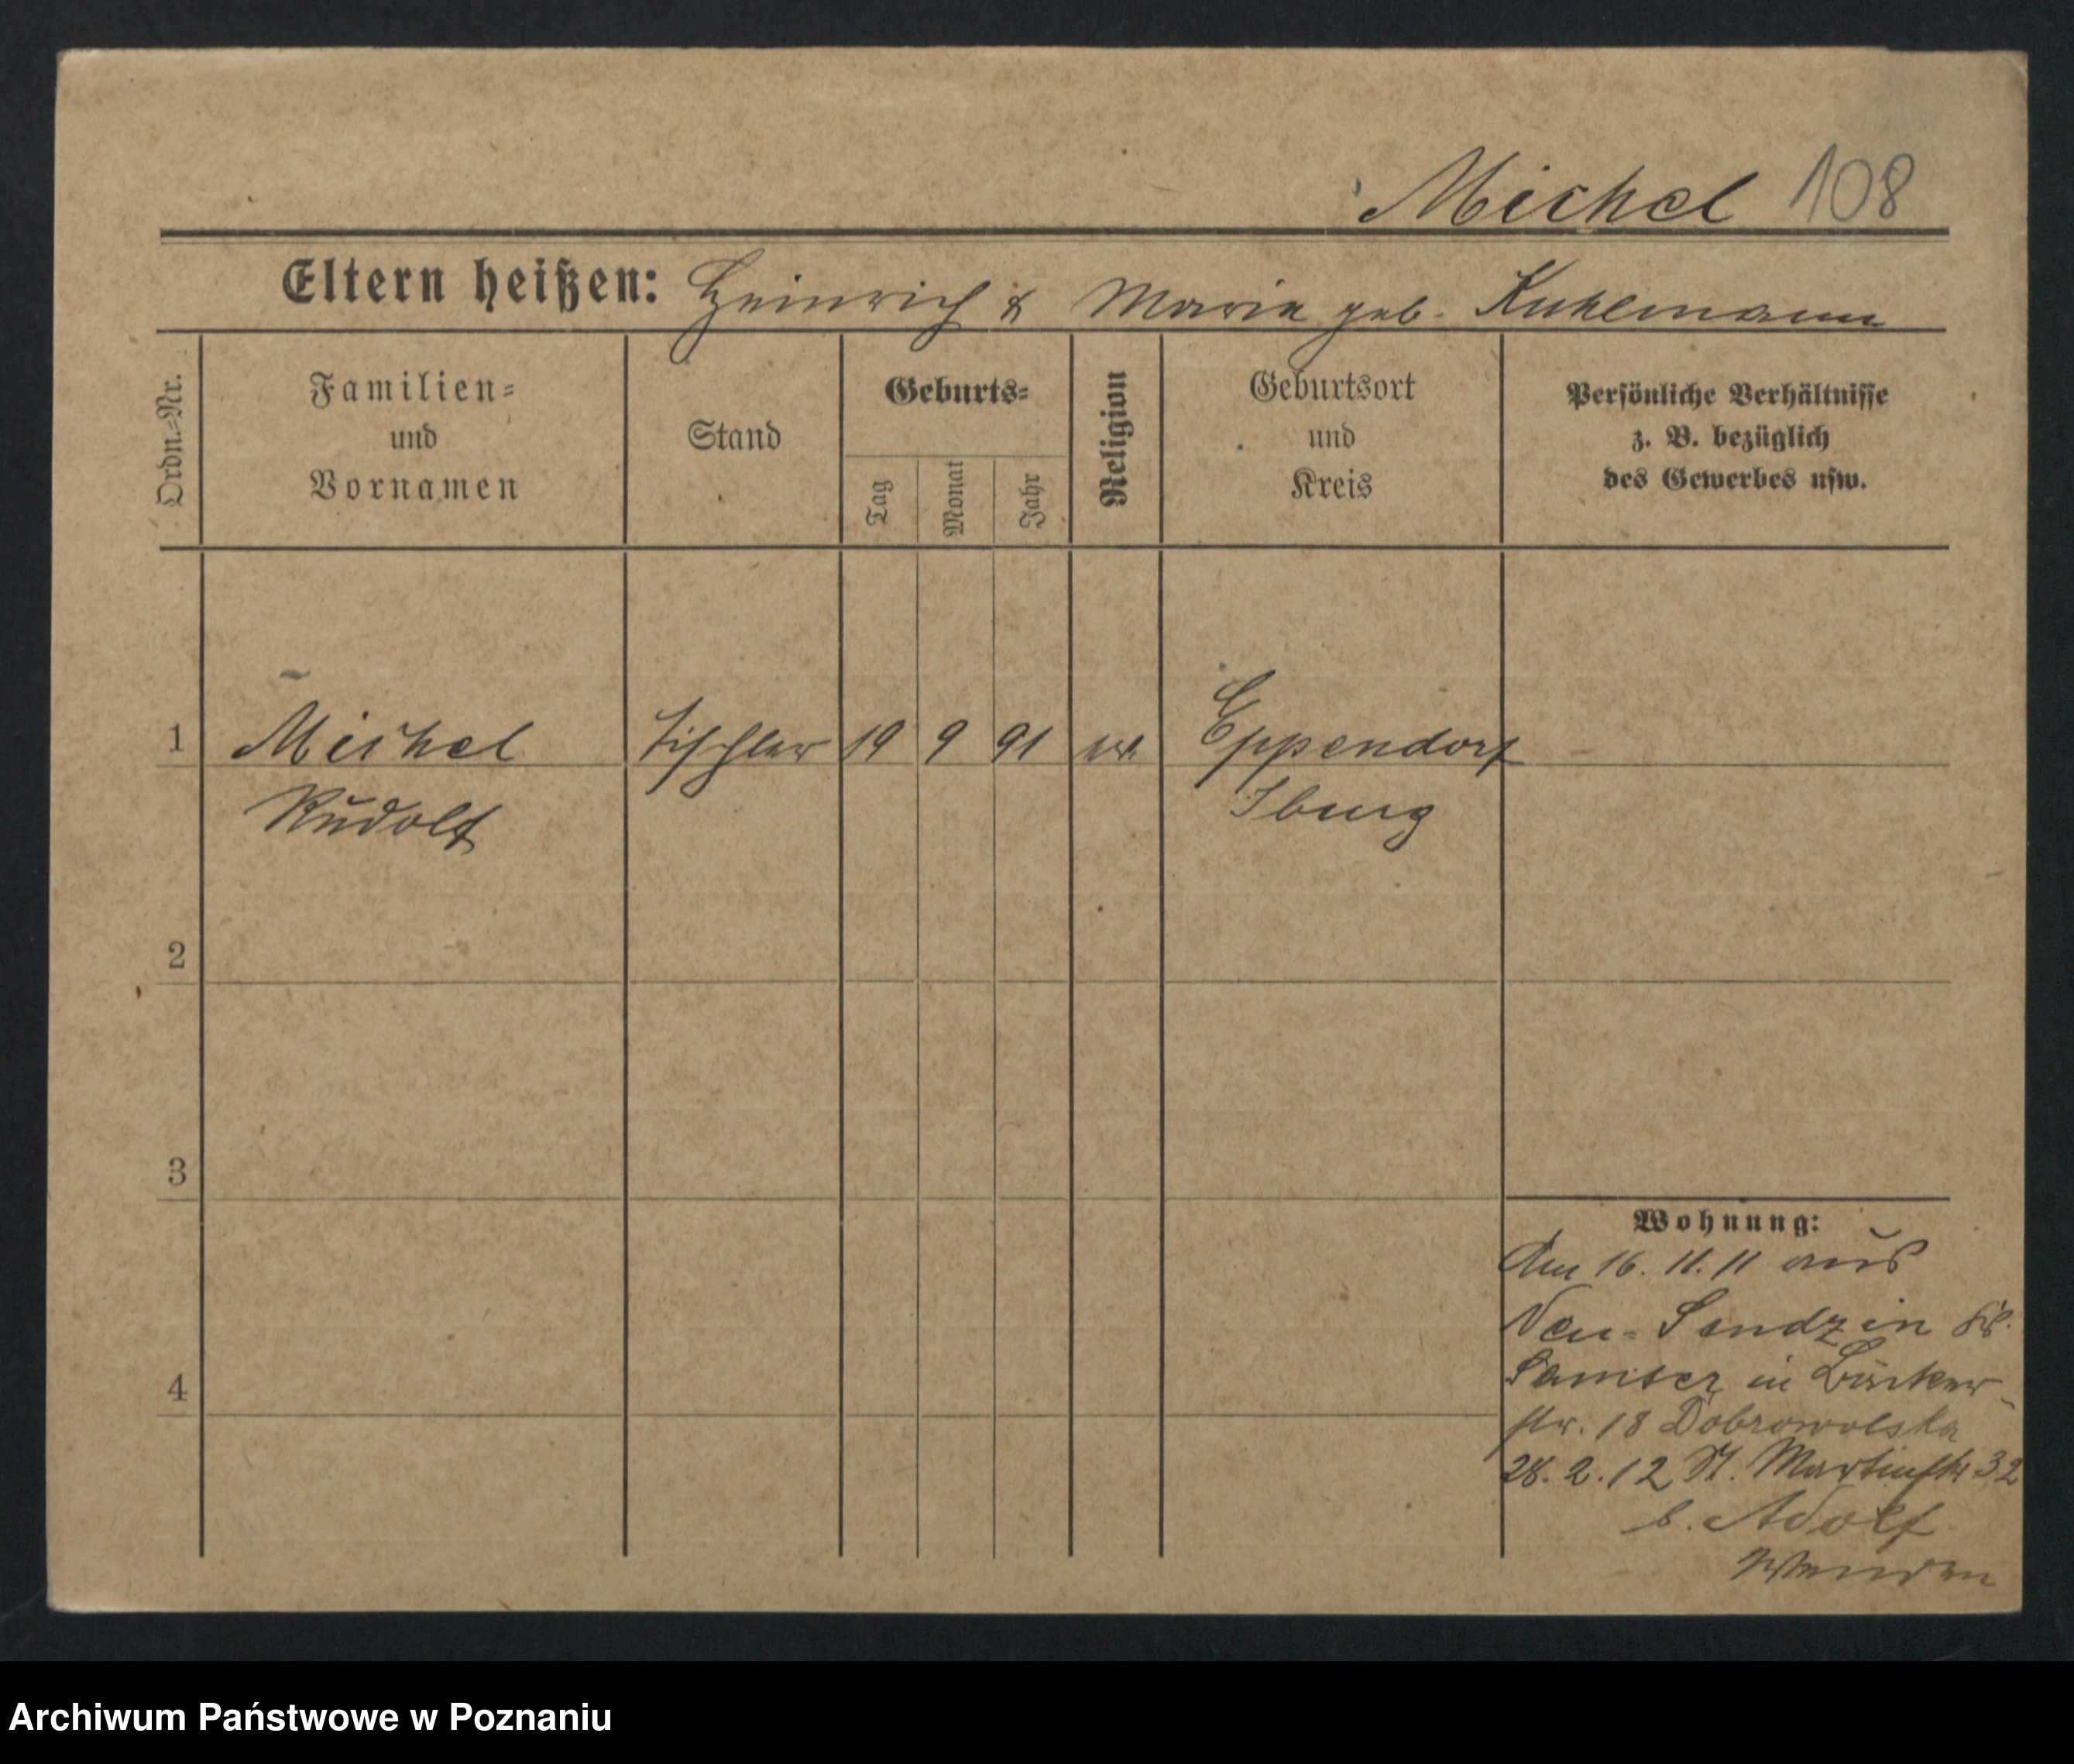 Michel 108
Eltern heißen: Heinrich & Maria geb. Kuhlmann
Ordn.-Nr.
Familien-
und
Vornamen
Stand
Geburts-
Tag
Monat
Jahr
Religion
Geburtsort
und
Kreis
Persönliche Verhältnisse
z. B. bezüglich
des Gewerbes usw.
1 Michel Tischler 19 9 91 ev. Eppendorf
Rudolf Iburg
2
3
4
Wohnung:
Am 16. 11. 11 aus
Neu-
Samter in Bäcker-
str. 18 Dobrowolska
28. 2. 12 St. Martinstr 32
b. Adolf
Archiwum Państwowe w Poznaniu